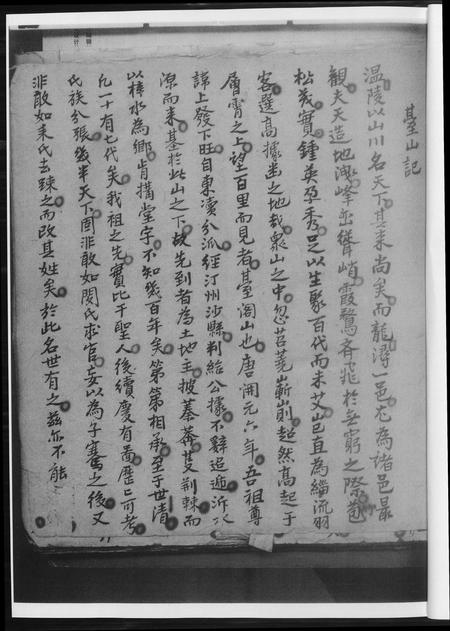 臺山記
温陵以山川名天下其来尚矣而龍潯一邑尤為諸邑最
觀夫天造地設峰巒聳峭霞鶩齊飛於無窮之際苞
松茂實鍾英孕秀足以生聚百代而未艾豈直為緇流羽
客選高據幽之地哉衆山之中忽苕荛嶄崱超然高起于
層霄之上望百里而見者臺閣山也唐開元六年吾祖尊
諱上發下旺自東瀆分派經汀州沙縣判給公據不辭迢遞泝以
源而来基於此山之下故先到者為土地主披蓁莽芟荆棘而
以梓水為鄉肯搆堂宇不知幾百年矣第第相承至于世清
凡一十有七代矣我祖之先實比干聖人後續慶有啚歷亡可考
氏族分張幾半天下固非敢如閔氏求官妄以為子騫之後又
非敢如束氏去踈之而改其姓矣於此名世有之兹亦不能